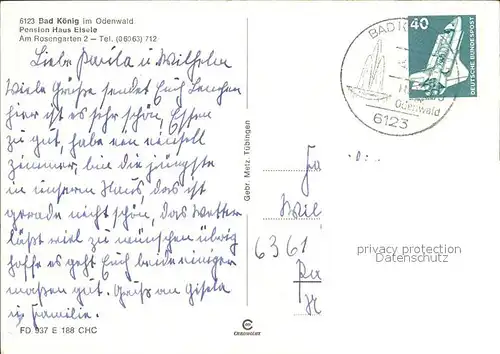 6123 Bad König im Odenwald
Pension Haus Eisele
Am Rosengarten 2 – Tel. (06063) 712
Liebe Paula u. Wilhelm
Viele Grüße sendet Euch Lenchen
hier ist es sehr schön, Essen
zu gut, habe ein
Zimmer, bin die jüngste
in unserm Haus, das ist
gerade nicht schön, das Wetter
läßt viel zu wünschen übrig
hoffe es geht Euch beide einiger
maßen gut. Gruß an Gisela
u. Familie.
FD 937 E 188 CHC
Gebr. Metz, Tübingen
CEKACOLOR
BAD K
Odenwald
6123
40
DEUTSCHE BUNDESPOST
Fa
Wil
6361
privacy protection
Datenschutz